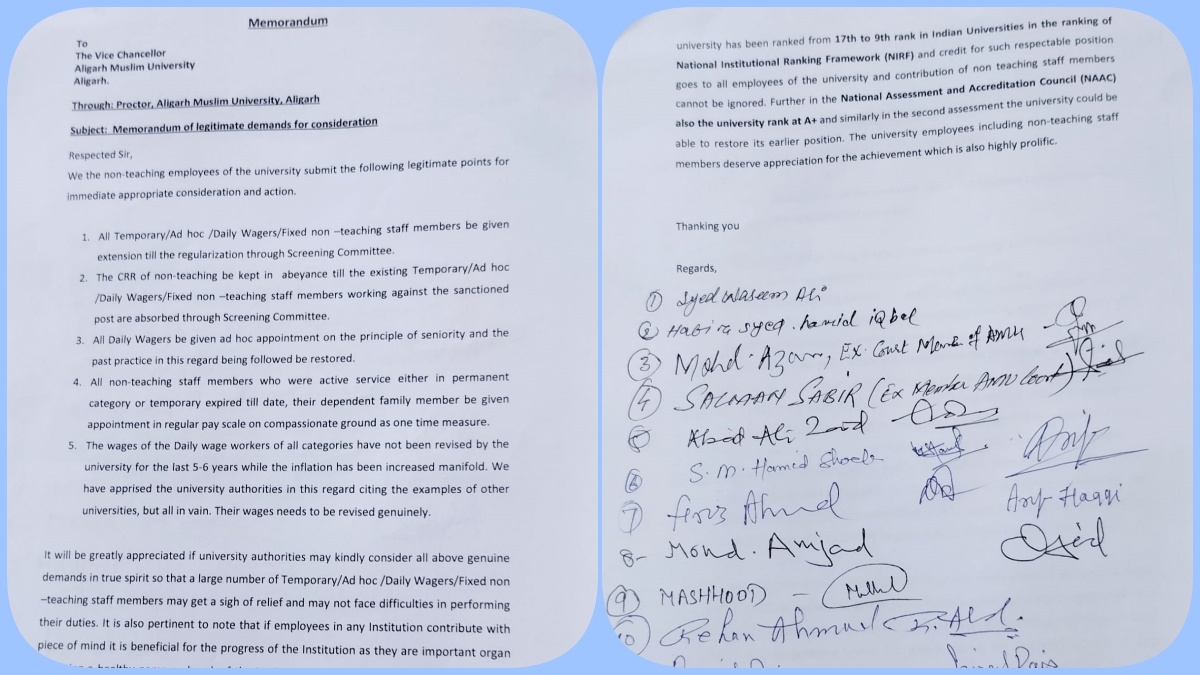 Memorandum
To
The Vice Chancellor
Aligarh Muslim University
Aligarh.
Through: Proctor, Aligarh Muslim University, Aligarh
Subject: Memorandum of legitimate demands for consideration
Respected Sir,
We the non-teaching employees of the university submit the following legitimate points for
immediate appropriate consideration and action.
1. All Temporary/Ad hoc /Daily Wagers/Fixed non –teaching staff members be given
extension till the regularization through Screening Committee.
2. The CRR of non-teaching be kept in abeyance till the existing Temporary/Ad hoc
/Daily Wagers/Fixed non –teaching staff members working against the sanctioned
post are absorbed through Screening Committee.
3. All Daily Wagers be given ad hoc appointment on the principle of seniority and the
past practice in this regard being followed be restored.
4. All non-teaching staff members who were active service either in permanent
category or temporary expired till date, their dependent family member be given
appointment in regular pay scale on compassionate ground as one time measure.
5. The wages of the Daily wage workers of all categories have not been revised by the
university for the last 5-6 years while the inflation has been increased manifold. We
have apprised the university authorities in this regard citing the examples of other
universities, but all in vain. Their wages needs to be revised genuinely.
It will be greatly appreciated if university authorities may kindly consider all above genuine
demands in true spirit so that a large number of Temporary/Ad hoc /Daily Wagers/Fixed non
–teaching staff members may get a sigh of relief and may not face difficulties in performing
their duties. It is also pertinent to note that if employees in any Institution contribute with
piece of mind it is beneficial for the progress of the Institution as they are important organ
university has been ranked from 17th to 9th rank in Indian Universities in the ranking of
National Institutional Ranking Framework (NIRF) and credit for such respectable position
goes to all employees of the university and contribution of non teaching staff members
cannot be ignored. Further in the National Assessment and Accreditation Council (NAAC)
also the university rank at A+ and similarly in the second assessment the university could be
able to restore its earlier position. The university employees including non-teaching staff
members deserve appreciation for the achievement which is also highly prolific.
Thanking you
Regards,
1 Syed Waseem Ali
2 syed hamid iqbal
3 Mohd. Azam, Ex. Court of AMU
4 SALMAN SABIR (Ex Member AMU Court)
Abid Ali
6 S. M. Hamid
7 Ahmad
Arif Haqqi
8- Mohd. Amjad
9 MASHHOOD
10 Rehan Ahmad